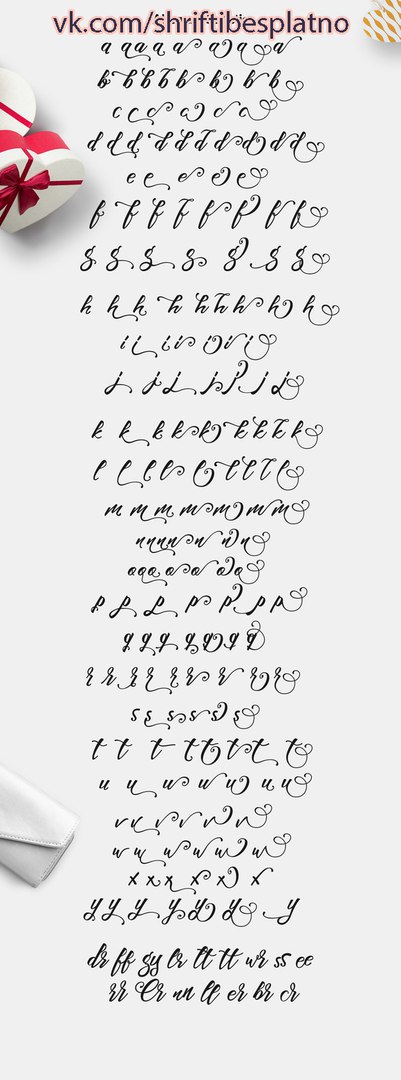 vk.com/shriftibesplatno
a a a a a a a a a
b b b b b b b b b
c c c c c c c
d d d d d d d d d d
e e e e e e
f f f f f f f f
g g g g g g g
h h h h h h h h h
i i i i i i i
j j j j j j j
k k k k k k k k k
l l l l l l l l l
m m m m m m m
n n n n n n n
o o o o o o o
p p p p p p p
q q q q q q q
r r r r r r r r r
s s s s s s s
t t t t t t t t
u u u u u u u
v v v v v v
w w w w w w
x x x x x x
y y y y y y y
dr ff gy lr tt tt wr ss ee
rr Er nn ll er br cr